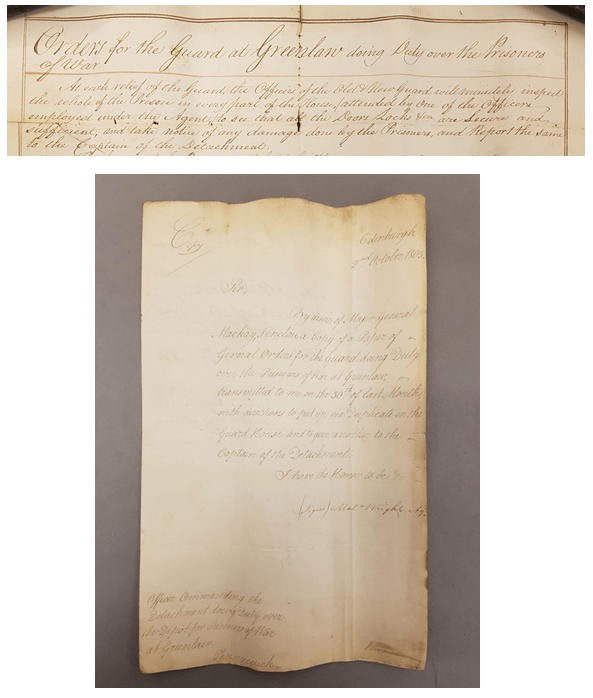 Orders for the Guard at Greenlaw doing Duty over the Prisoners
of War
At each relief of the Guard, the Officers of the Old & New Guard will minutely inspect
the whole of the Prison in every part of the House, attended by one of the Officers
employed under the Agent, to see that all the Doors Locks &ca are Secure and
sufficient, and take notice of any damage done by the Prisoners, and Report the same
to the Captain of the Detachment.
Copy
Edinburgh
2nd October 1805.
Sir,
By desire of Major General
Mackay, I enclose a Copy of a Paper of
General Orders for the Guard doing Duty
over the Prisoners of War at Greenlaw,
transmitted to me on the 30th of last Month,
with directions to put up one Duplicate in the
Guard House and to give another to the
Captain of the Detachment.
I have the Honor to be &c
(Signed) Mal Wright
Officer Commanding the
Detachment doing Duty over
the Depot for Prisoners of War
at Greenlaw.
Pennycuick